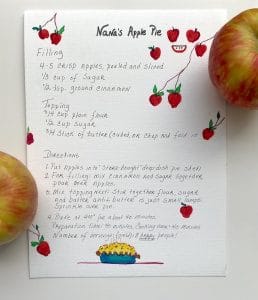 Nana's Apple Pie
Filling
4-5 crisp apples, peeled and sliced
1/3 cup of sugar
1/2 tsp. ground cinnamon
Topping
3/4 cup plain flour
1/2 cup sugar
3/4 stick of butter (cubed, or chop and fold in
Directions
1. Put apples into "store bought" deep dish pie shell
2. For filling: mix cinnamon and sugar together,
pour over apples.
3. Mix topping next: Stir together flour, sugar
and butter until butter is just small lumps.
Sprinkle over pie.
4. Bake at 400° for about 40 minutes.
Preparation time: 40 minutes, Cooking time: 40 minutes
Number of servings (yield): 8 happy people!